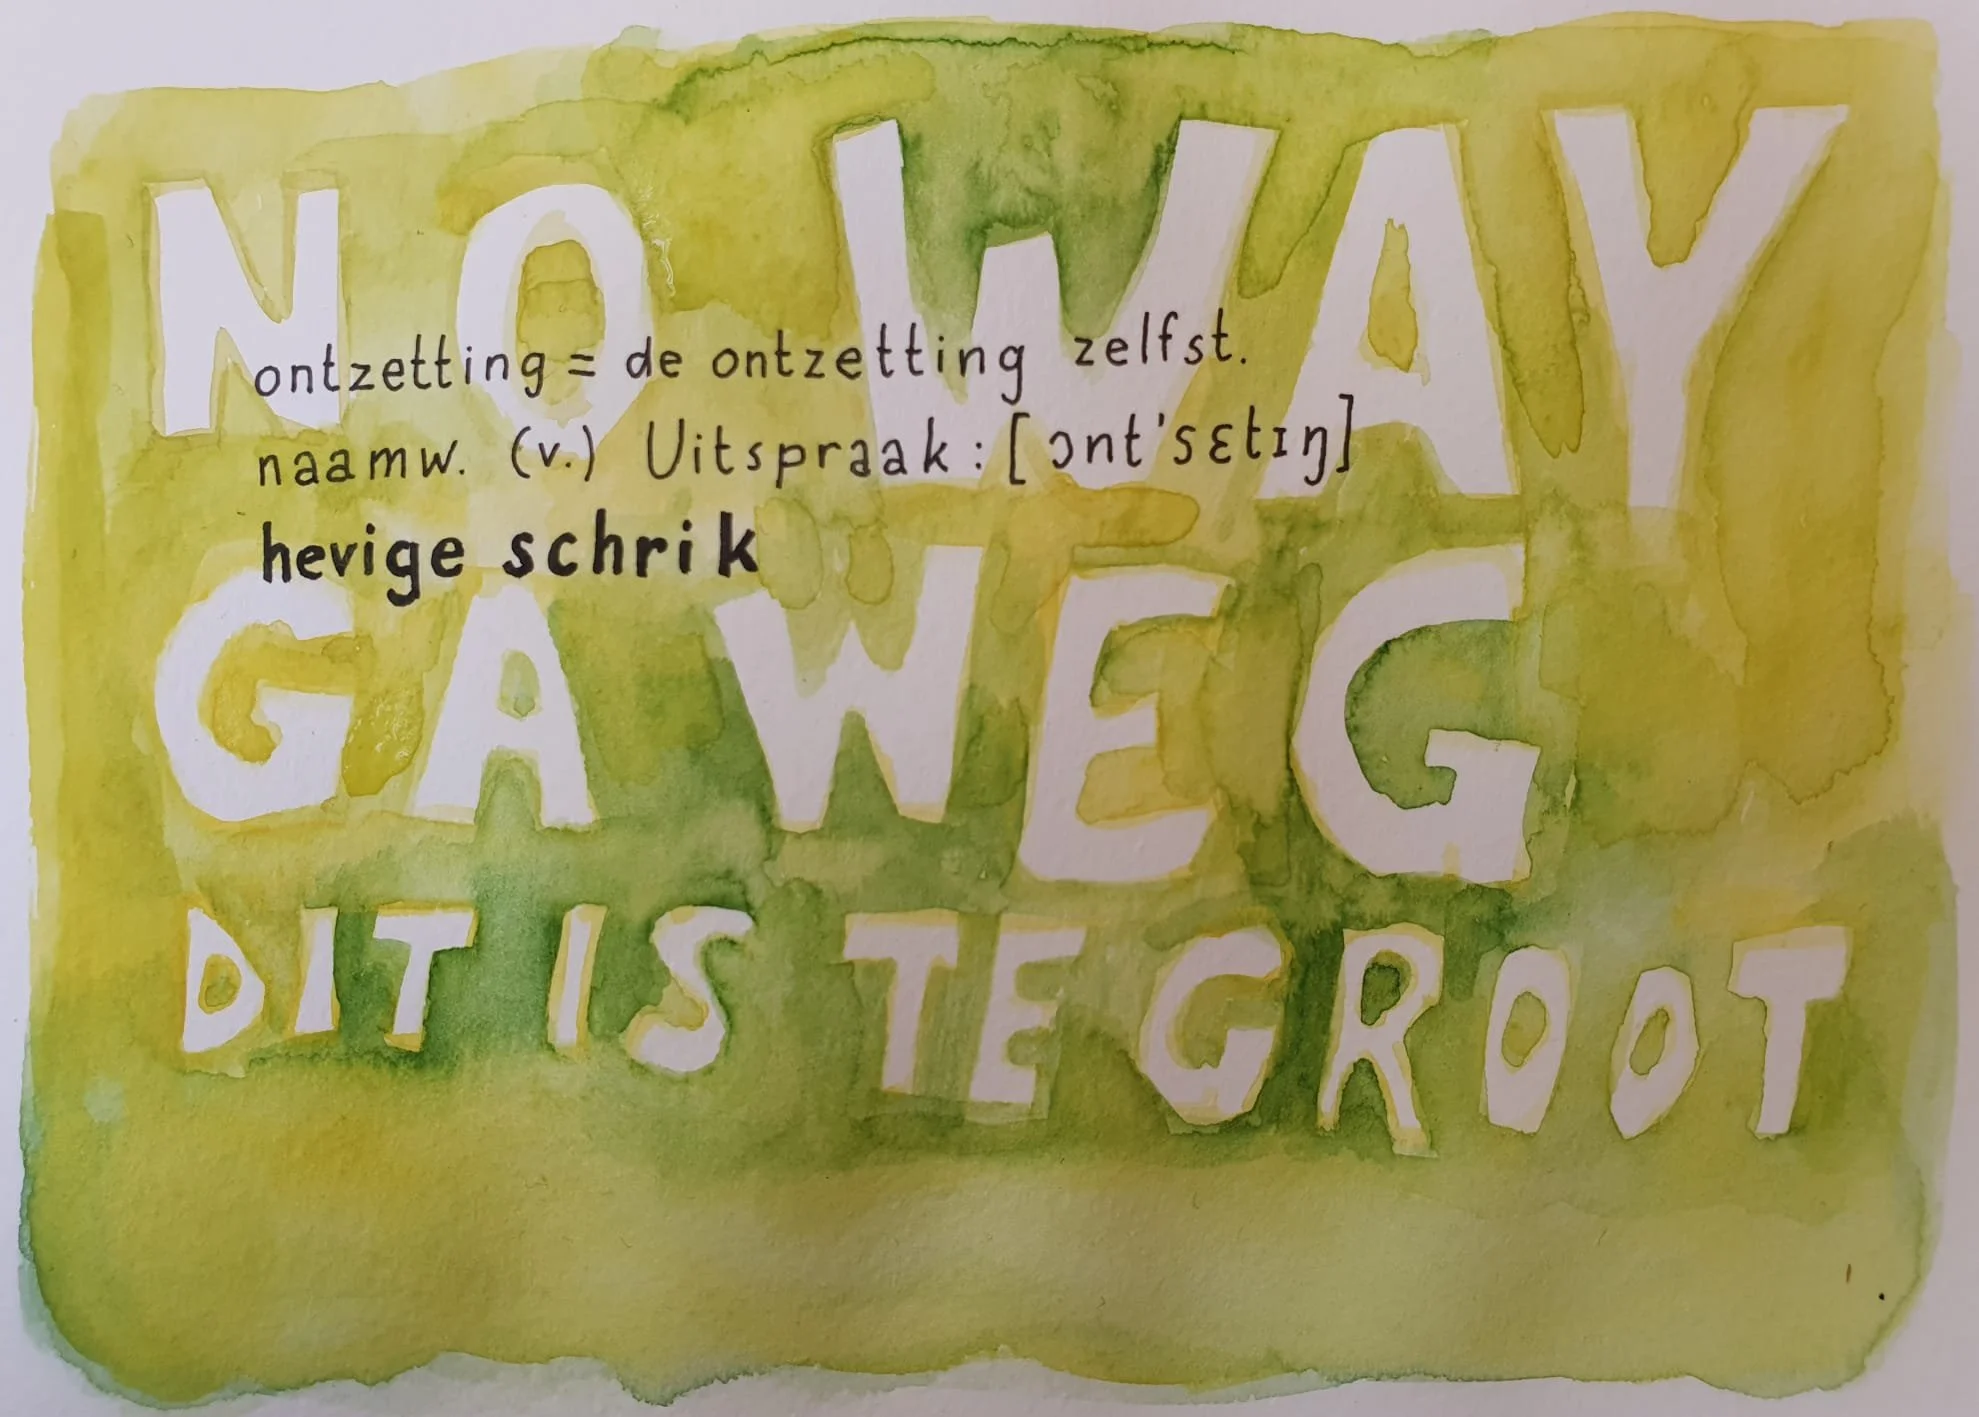 NO WAY
ontzetting = de ontzetting zelfst.
naamw. (v.) Uitspraak : [ɔnt'sɛtɪŋ]
hevige schrik
GA WEG
DIT IS TE GROOT